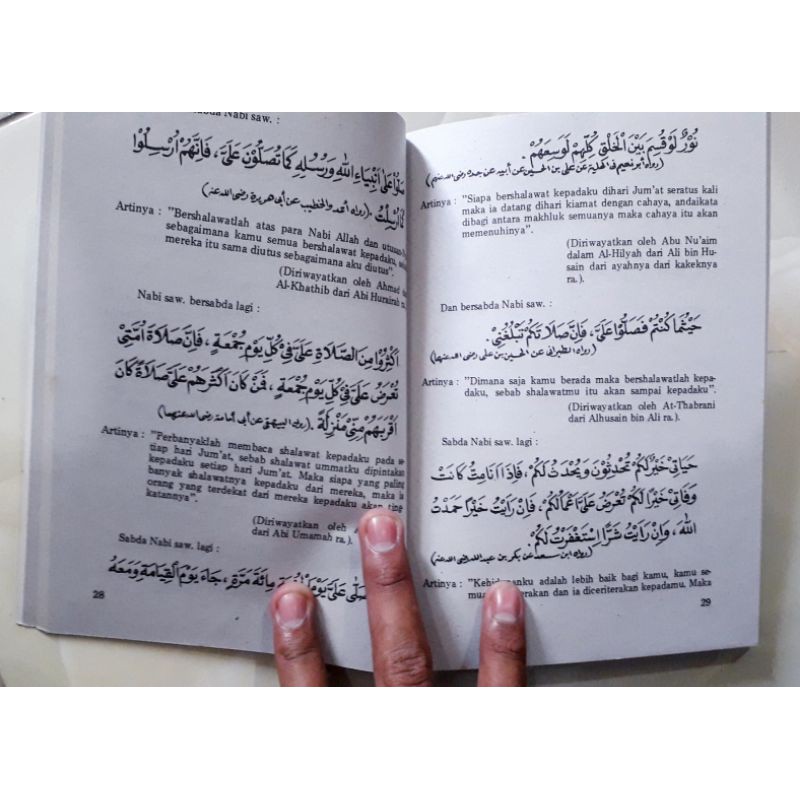 sabda Nabi saw. :
صَلُّوْا عَلَى اَنْبِيَاءِ اللهِ وَرُسُلِهِ كَمَا تُصَلُّوْنَ عَلَيَّ، فَاِنَّهُمْ اُرْسِلُوْا
كَمَا اُرْسِلْتُ. (رواه احمد والخطيب عن أبى هريرة رضى الله عنه)
Artinya : "Bershalawatlah atas para Nabi Allah dan utusan-
sebagaimana kamu semua bershalawat kepadaku,
mereka itu sama diutus sebagaimana aku diutus".
(Diriwayatkan oleh Ahmad
Al-Khathib dari Abi Hurairah ra.)
Nabi saw. bersabda lagi :
اَكْثِرُوْا مِنَ الصَّلَاةِ عَلَيَّ فِيْ كُلِّ يَوْمِ جُمُعَةٍ، فَاِنَّ صَلَاةَ اُمَّتِيْ
تُعْرَضُ عَلَيَّ فِيْ كُلِّ يَوْمِ جُمُعَةٍ، فَمَنْ كَانَ اَكْثَرَهُمْ عَلَيَّ صَلَاةً كَانَ
اَقْرَبَهُمْ مِنِّيْ مَنْزِلَةً. (رواه البيهقى عن أبى أمامة رضى الله عنهما)
Artinya : "Perbanyaklah membaca shalawat kepadaku pada se-
tiap hari Jum'at, sebab shalawat ummatku dipintakan
kepadaku setiap hari Jum'at. Maka siapa yang paling
banyak shalawatnya kepadaku dari mereka, maka ia
orang yang terdekat dari mereka kepadaku akan ting
katannya".
(Diriwayatkan oleh
dari Abi Umamah ra.).
Sabda Nabi saw. lagi :
صَلَّى عَلَيَّ يَوْمَ مِائَةَ مَرَّةٍ، جَاءَ يَوْمَ الْقِيَامَةِ وَمَعَهُ
28
نُوْرٌ لَوْ قُسِمَ بَيْنَ الْخَلْقِ كُلِّهِمْ لَوَسِعَهُمْ.
(رواه أبو نعيم فى الحلية عن على بن الحسين عن أبيه عن جده رضى الله عنهم)
Artinya : "Siapa bershalawat kepadaku dihari Jum'at seratus kali
maka ia datang dihari kiamat dengan cahaya, andaikata
dibagi antara makhluk semuanya maka cahaya itu akan
memenuhinya".
(Diriwayatkan oleh Abu Nu'aim
dalam Al-Hilyah dari Ali bin Hu-
sain dari ayahnya dari kakeknya
ra.).
Dan bersabda Nabi saw. :
حَيْثُمَا كُنْتُمْ فَصَلُّوْا عَلَيَّ، فَاِنَّ صَلَاتَكُمْ تَبْلُغُنِيْ.
(رواه الطبرانى عن الحسين بن على رضى الله عنهما)
Artinya : "Dimana saja kamu berada maka bershalawatlah kepa-
daku, sebab shalawatmu itu akan sampai kepadaku".
(Diriwayatkan oleh At-Thabrani
dari Alhusain bin Ali ra.).
Sabda Nabi saw. lagi :
حَيَاتِيْ خَيْرٌ لَكُمْ تُحَدِّثُوْنَ وَيُحَدَّثُ لَكُمْ، فَاِذَا اَنَامِتُّ كَانَتْ
وَفَاتِيْ خَيْرًا لَكُمْ تُعْرَضُ عَلَيَّ اَعْمَالُكُمْ، فَاِنْ رَاَيْتُ خَيْرًا حَمِدْتُ
اللهَ، وَاِنْ رَاَيْتُ شَرًّا اِسْتَغْفَرْتُ لَكُمْ.
(رواه ابن سعد عن بكر بن عبد الله رضى الله عنه)
Artinya : adalah lebih baik bagi kamu, kamu se-
dan ia diceriterakan kepadamu. Maka
29